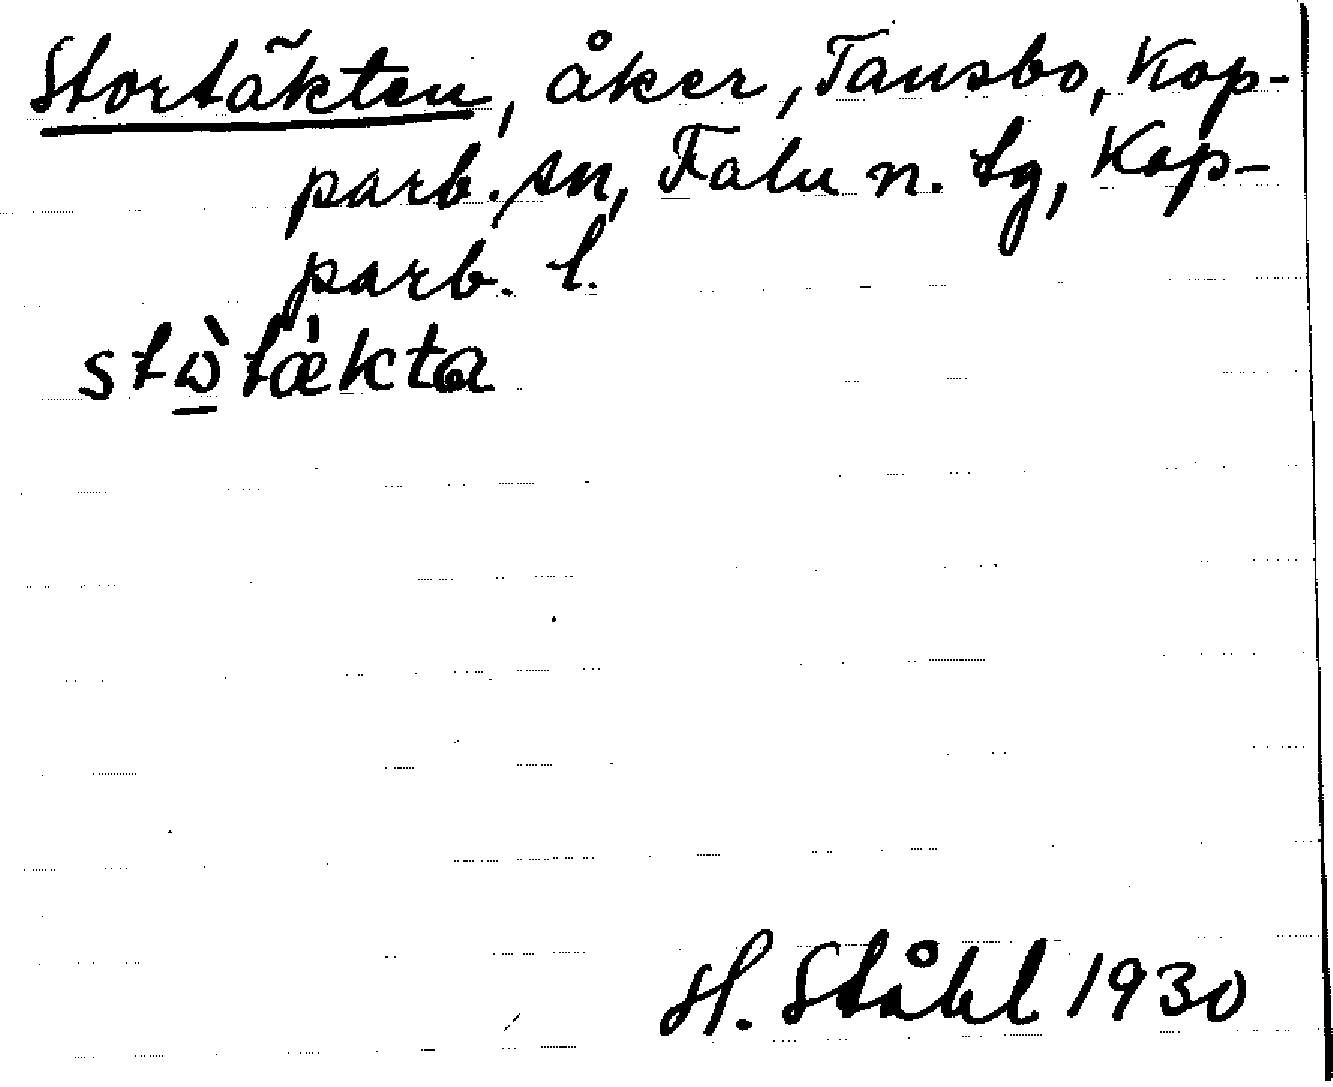 Stortäkten, åker, Tansbo, Kop-
parb. sn, Falu n. tg, Kop-
parb. l.
stὼ̱tækta
H. Ståhl 1930